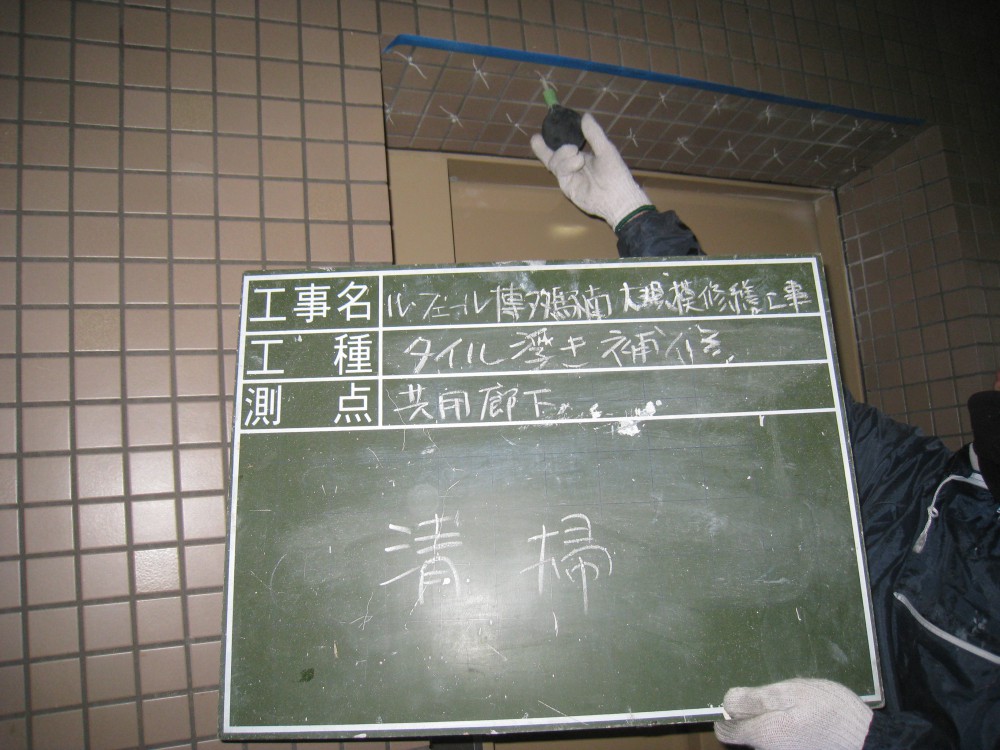 工事名 ルフェール博多駅南大規模修繕工事
工種 タイル浮き補修
測点 共用廊下
清掃